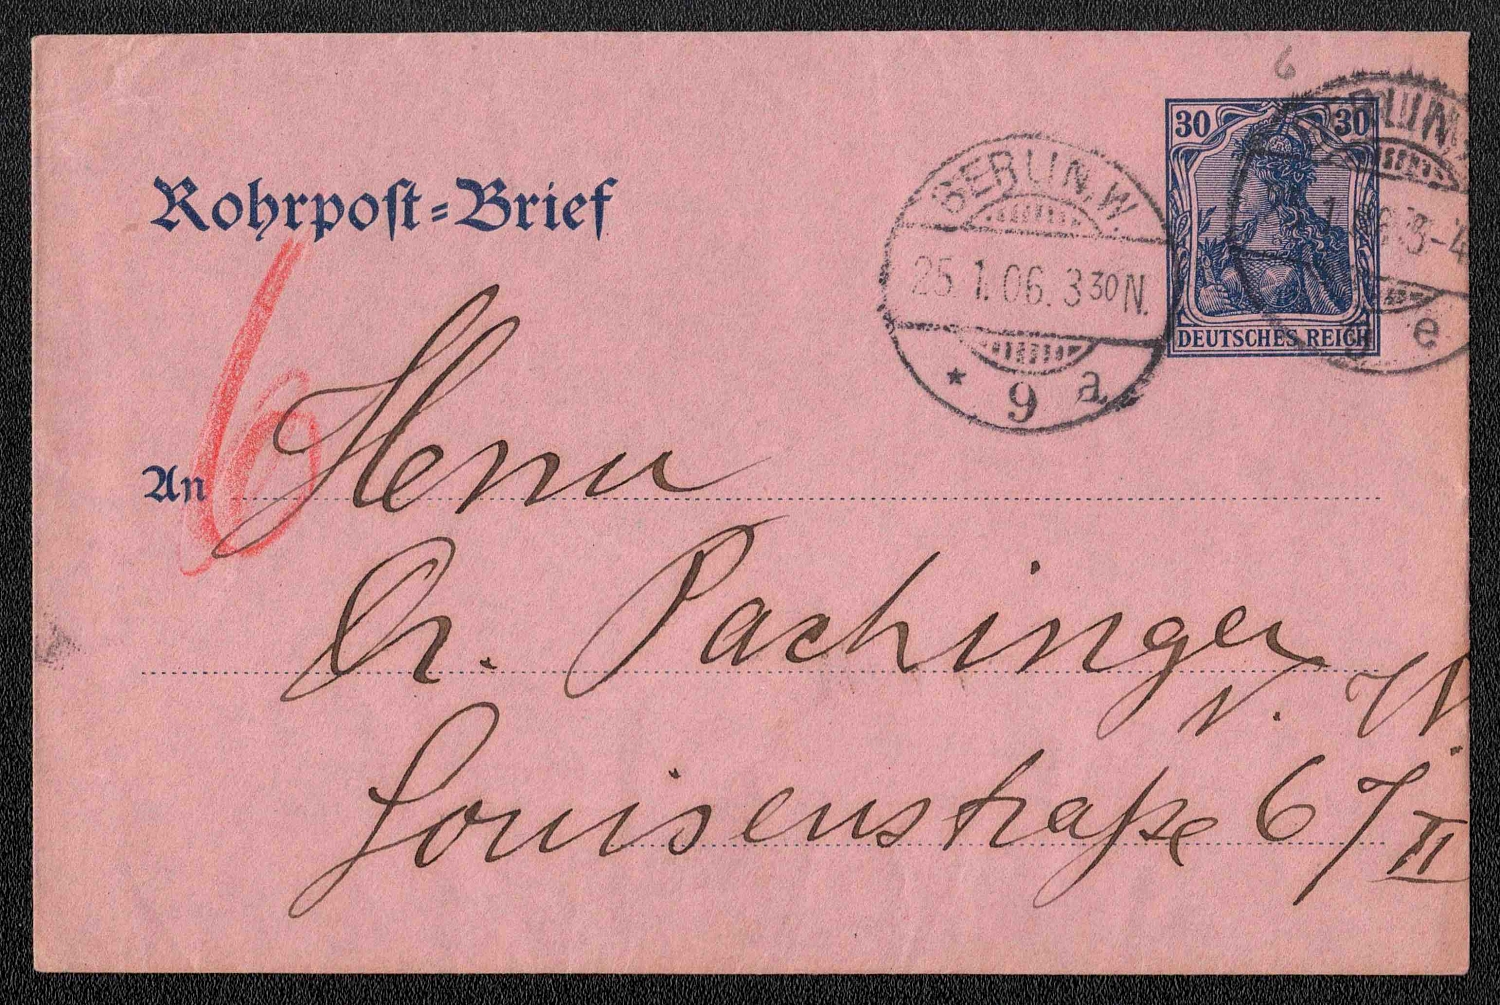 6
30 30
DEUTSCHES REICH
BERLIN, W.
25. 1. 06. 3 30 N.
* 9 a
BERLIN,
3-4
e
Rohrpost-Brief
6
An Herrn
Dr. Pachinger
N. W.
Louisenstraße 67 II